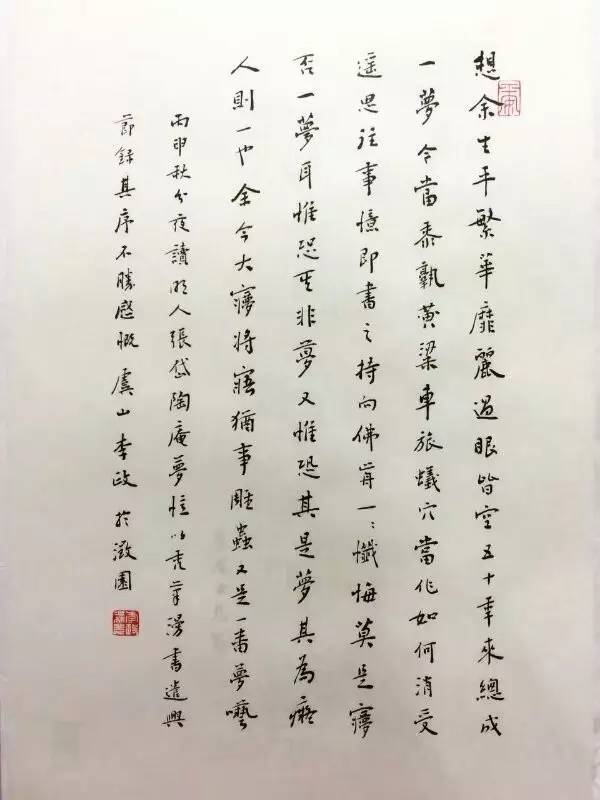 想余生平繁華靡麗過眼皆空五十年來總成
一夢今當黍孰黃粱車旅蟻穴當作如何消受
遥思往事憶即書之持向佛前一ミ懺悔莫是寱
否一夢耳惟恐其非夢又惟恐其是夢其為癡
人則一也余今大寱將寤猶事雕蟲又是一番夢囈
丙申秋分夜讀明人張岱陶庵夢憶以禿筆漫書遣興
節錄其序不勝感慨虞山李政於澂園